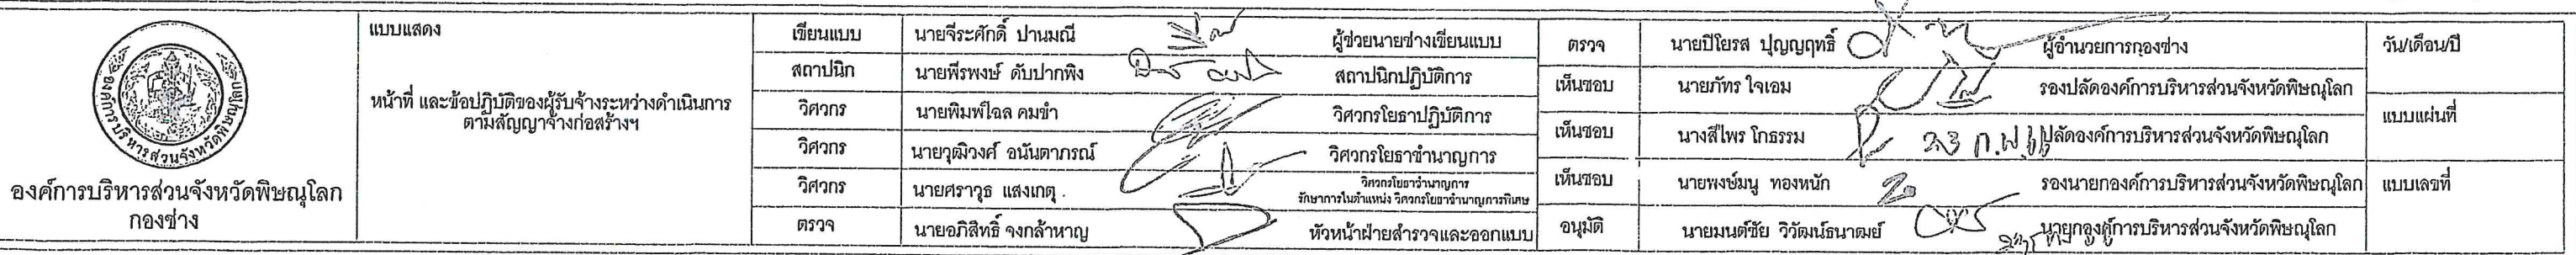 องค์การบริหารส่วนจังหวัดพิษณุโลก
องค์การบริหารส่วนจังหวัดพิษณุโลก
กองช่าง
แบบแสดง
หน้าที่ และข้อปฏิบัติของผู้รับจ้างระหว่างดำเนินการ
ตามสัญญาจ้างก่อสร้างฯ
เขียนแบบ นายจีระศักดิ์ ปานมณี ผู้ช่วยนายช่างเขียนแบบ
สถาปนิก นายพีรพงษ์ ดับปากพิง สถาปนิกปฏิบัติการ
วิศวกร นายพิมพ์ไอล คมขำ วิศวกรโยธาปฏิบัติการ
วิศวกร นายวุฒิวงศ์ อนันตาภรณ์ วิศวกรโยธาชำนาญการ
วิศวกร นายศราวุธ แสงเกตุ วิศวกรโยธาชำนาญการ
รักษาการในตำแหน่ง วิศวกรโยธาชำนาญการพิเศษ
ตรวจ นายอภิสิทธิ์ จงกล้าหาญ หัวหน้าฝ่ายสำรวจและออกแบบ
ตรวจ นายปิโยรส ปุญญฤทธิ์ ผู้อำนวยการกองช่าง
เห็นชอบ นายภัทร ใจเอม รองปลัดองค์การบริหารส่วนจังหวัดพิษณุโลก
เห็นชอบ นางสีไพร โกธรรม 23 ก.พ. 66 ปลัดองค์การบริหารส่วนจังหวัดพิษณุโลก
เห็นชอบ นายพงษ์มนู ทองหนัก รองนายกองค์การบริหารส่วนจังหวัดพิษณุโลก
อนุมัติ นายมนต์ชัย วิวัฒน์ธนาฒย์ นายกองค์การบริหารส่วนจังหวัดพิษณุโลก
วัน/เดือน/ปี
แบบแผ่นที่
แบบเลขที่